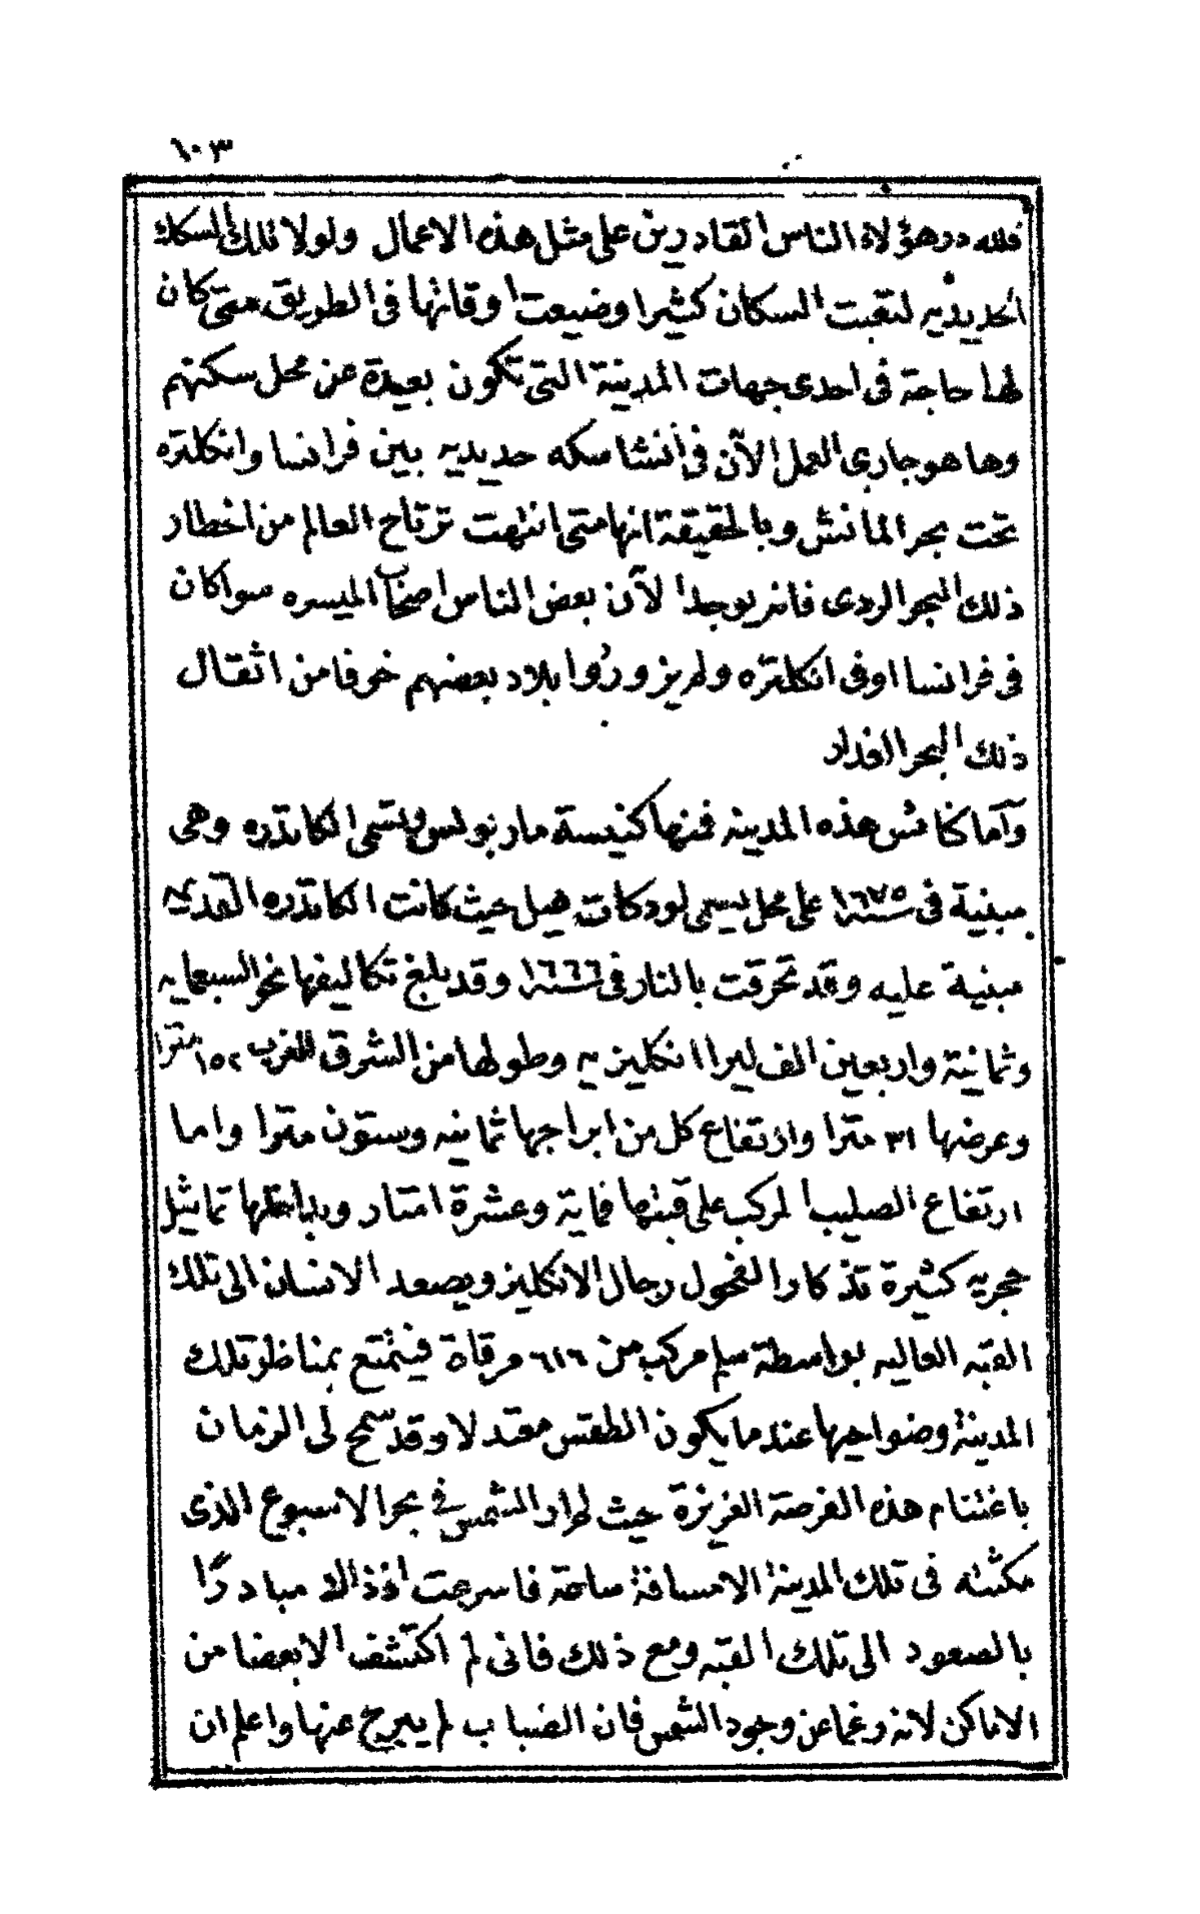 ١٠٣
فلله در هؤلاء الناس القادرين على مثل هذه الاعمال ولولا تلك السكك
الحديديه لتعبت السكان كثيرا وضيعت اوقاتها فى الطريق متى كان
لها حاجة فى احدى جهات المدينة التى تكون بعيدة عن محل سكنهم
وها هو جارى العمل الآن فى أنشا سكه حديديه بين فرانسا وانكلتره
تحت بحر المانش وبالحقيقة انها متى انتهت ترتاح العالم من اخطار
ذلك البحر الردى فانه يوجد الآن بعض الناس اصحاب الميسره سوا كان
فى فرانسا او فى انكلتره ولم يزوروا بلاد بعضهم خوفا من اثقال
ذلك البحر الغدار
وأما كنائس هذه المدينه فمنها كنيسة مار بولس ويسمى الكاتدره وهى
مبنية فى سنة ١٦٧٥ على محل يسمى لودكات هيل حيث كانت الكاتدره القديمه
مبنية عليه وقد تحرقت بالنار فى سنة ١٦٦٦ وقد بلغ تكاليفها نحو السبعمايه
وثمانية واربعين الف ليرا انكليزيه وطولها من الشرق للغرب ١٥٢ مترا
وعرضها ٣١ مترا وارتفاع كل من ابراجها ثمانيه وستون مترا واما
ارتفاع الصليب المركب على قبتها فماية وعشرة امتار وبداخلها تماثيل
حجريه كثيرة تذكارا لفحول رجال الانكليز ويصعد الانسان الى تلك
القبه العاليه بواسطة سلم مركب من ٦١٦ مرقاة فيتمتع بمناظر تلك
المدينة وضواحيها عندما يكون الطقس معتدلا وقد سمح لى الزمان
باغتنام هذه الفرصة العزيزة حيث لم ار الشمس فى بحر الاسبوع الذى
مكثته فى تلك المدينة الا مسافة ساعة فاسرعت اذ ذاك مبادرًا
بالصعود الى تلك القبه ومع ذلك فانى لم اكتشف الا بعضا من
الاماكن لانه رغما عن وجود الشمس فان الضباب لم يبرح عنها واعلم ان